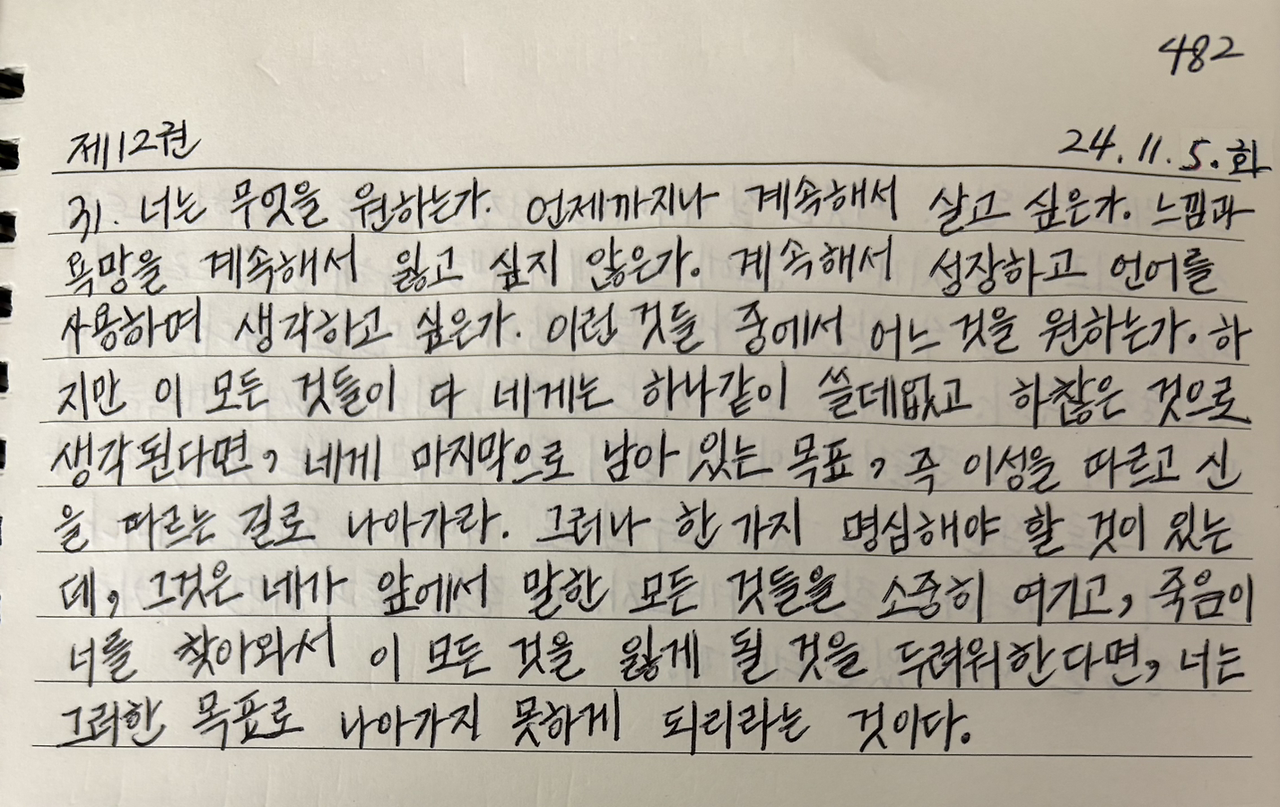 482
제12권 24.11.5.화
31. 너는 무엇을 원하는가. 언제까지나 계속해서 살고 싶은가. 느낌과
욕망을 계속해서 잃고 싶지 않은가. 계속해서 성장하고 언어를
사용하며 생각하고 싶은가. 이런 것들 중에서 어느 것을 원하는가. 하
지만 이 모든 것들이 다 네게는 하나같이 쓸데없고 하찮은 것으로
생각된다면, 네게 마지막으로 남아 있는 목표, 즉 이성을 따르고 신
을 따르는 길로 나아가라. 그러나 한 가지 명심해야 할 것이 있는
데, 그것은 네가 앞에서 말한 모든 것들을 소중히 여기고, 죽음이
너를 찾아와서 이 모든 것을 잃게 될 것을 두려워한다면, 너는
그러한 목표로 나아가지 못하게 되리라는 것이다.